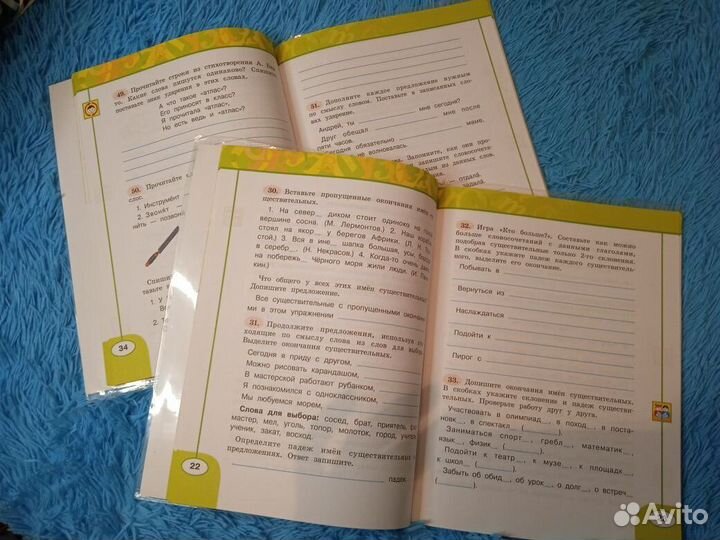 49. Прочитайте строки из стихотворения А.
то. Какие слова пишутся одинаково? Спишите,
поставьте знак ударения в этих словах.
А что такое «атлас»?
Его приносят в класс?
Я прочитала «атлас»,
Но есть ведь и «атлас»?
50. Прочитайте
1. Инструмент
2. Звонят
нить — позвони
Спиши
тавьте
1. У
2. Т
34
51. Дополните каждое предложение нужным
по смыслу словом. Поставьте в записанных сло-
вах ударение.
Андрей, ты мне сегодня?
Друг обещал мне после
пяти часов.
Сегодня обязательно маме,
не волновалась.
Запомните, как они про-
запишите словосоче-
из данных слов.
— отдала.
30. Вставьте пропущенные окончания имён су-
ществительных.
1. На север_ диком стоит одиноко на голой
вершине сосна. (М. Лермонтов.) 2. Наш корабль
стоял на якор_ у берегов Африки. (Л.
стой.) 3. Вся в ине_ шапка большая, усы, борода
в серебр_. (Н. Некрасов.) 4. Когда-то очень давно
на побережь_ Чёрного моря жили люди.
Что общего у всех этих имён существительных?
Допишите предложение.
Все существительные с пропущенными окончани-
ями в этом упражнении
31. Продолжите предложения, используя
ходящие по смыслу слова из слов для выбора.
Выделите окончания существительных.
Сегодня я приду с другом,
Можно рисовать карандашом,
В мастерской работают рубанком,
Я познакомился с одноклассником,
Мы любуемся морем,
Слова для выбора: сосед, брат, приятель,
мастер, мел, уголь, топор, молоток, город,
ученик, закат, восход.
Определите падеж имён существительных в
предложениях. Ответ запишите.
падеж
22
32. Игра «Кто больше?». Составьте как можно
больше словосочетаний с данными глаголами,
подобрав существительные только 2-го склонения.
В скобках укажите падеж каждого существитель-
ного, выделите его окончание.
Побывать в
Вернуться из
Наслаждаться
Подойти к
Пирог с
33. Допишите окончания имён существительных.
В скобках укажите склонение и падеж существи-
тельных. Проверьте работу друг у друга.
Участвовать в олимпиад_, в поход_, в поста-
новк_, в спектакл_ ( ).
Заниматься спорт_, гребл_, математик_,
язык_, физик_ ( ).
Подойти к театр_, к музе_, к площадк_,
к школ_ ( ).
Забыть об обид_, об урок_, о долг_, о встреч_
( ).
Avito